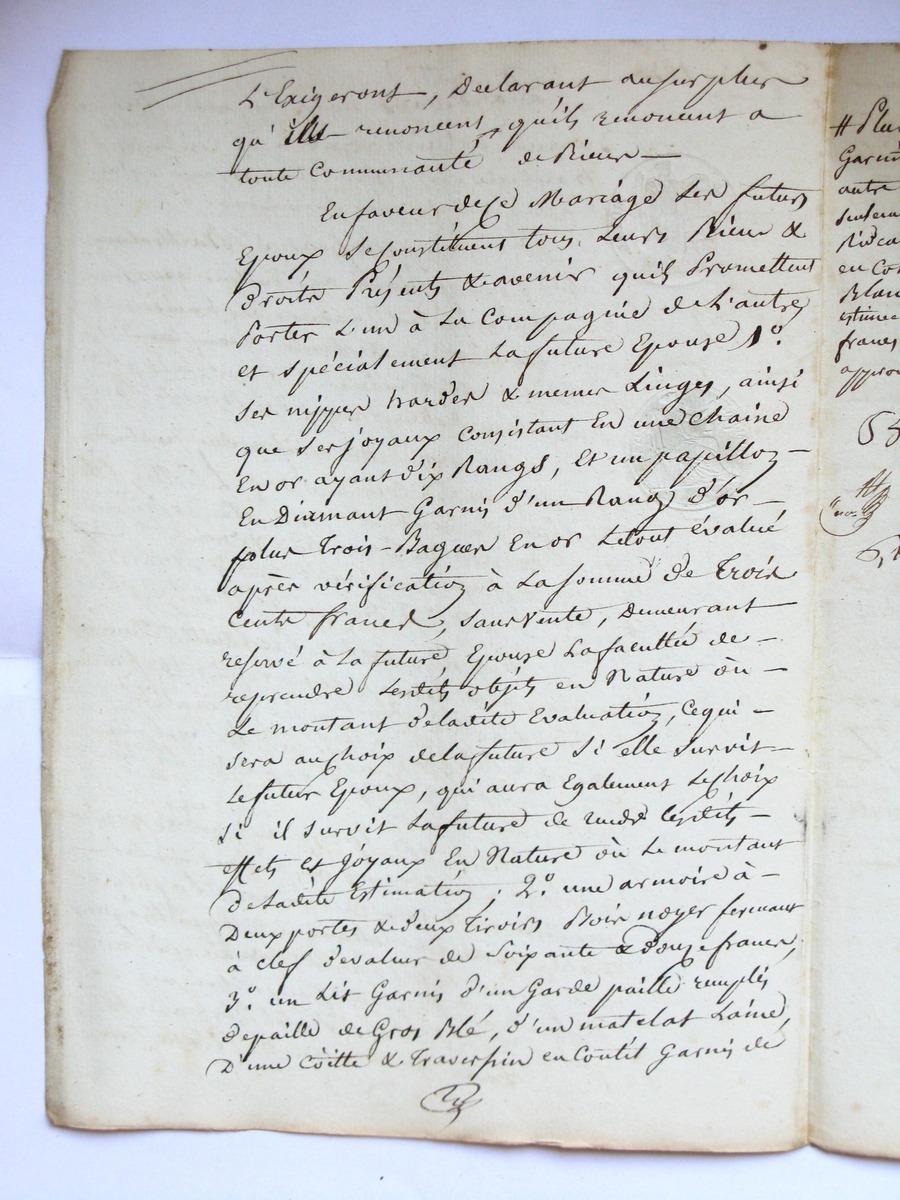 L'Exigeront, Declarant ausurplus
qu'ills renoncent, quils renoncent a
toute Communauté de Biens —
Enfaveur dece Mariage Les futurs
Epoux seconstituent tous Leurs Biens &
droits Présents & avenir quils Promettent
Porter L'un à La Compagnie de L'autre
et spécialement La future Epouse 1°.
ses nippes hardes & menus Linges, ainsi
que ses joyaux Consistant En une Chaine
En or ayant dix Rangs, Et un papillon —
En Diamant Garnis d'un Rang d'or —
plus Trois - Bagues En or Letout évalué
après vérification à La somme de Trois
Cents francs, sans vente, Demeurant
reservé à La future Epouse La faculté de —
reprendre Lesdits objets en Nature ou —
Le montant deladite Evaluation, Cequi —
sera au Choix dela future si elle survit —
Le futur Epoux, qui aura Egalement Le Choix
si il survit La future de rendre Lesdits —
effets et Joyaux En Nature ou Le montant
de Ladite Estimation; 2°. une armoire à —
Deux portes & deux Tiroirs Bois noyer fermant
à Clef devalur de Soixante & douze francs,
3°. un Lit Garnis d'un Garde paille remplis
depaille de Gros Blé, d'un matelat Laine,
D'une Coitte & Traversin en Coutit Garnis de
# Plu
Garni
autre
en Co
Blan
estimée
francs
appro